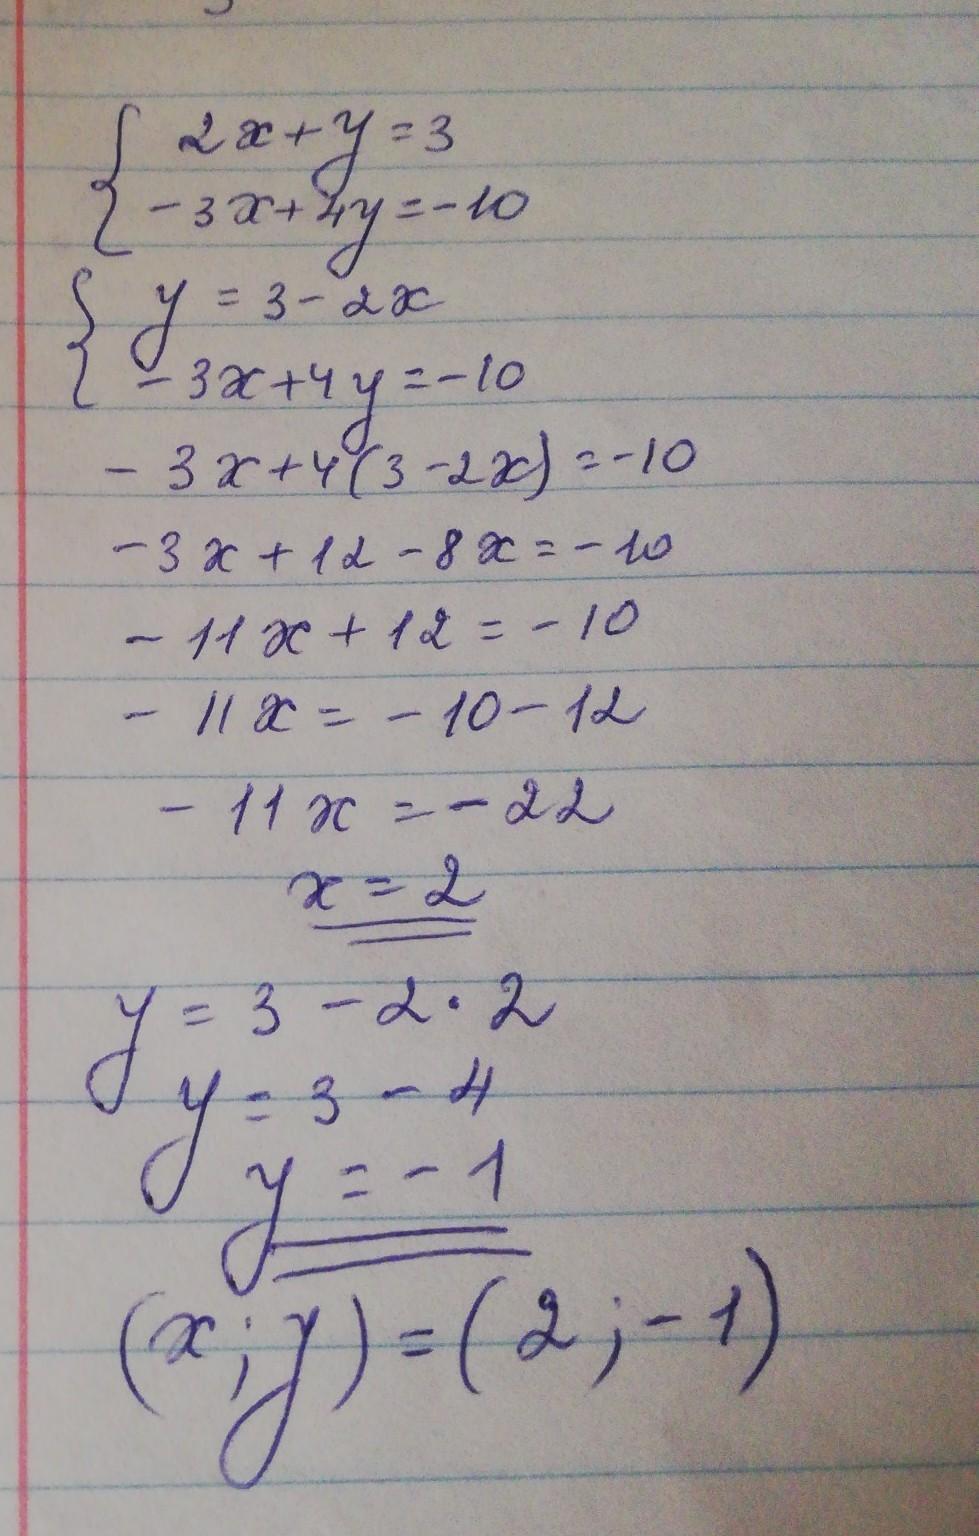 2x+y=3
-3x+4y=-10
y=3-2x
-3x+4y=-10
-3x+4(3-2x)=-10
-3x+12-8x=-10
-11x+12=-10
-11x=-10-12
-11x=-22
x=2
y=3-2·2
y=3-4
y=-1
(x;y)=(2;-1)